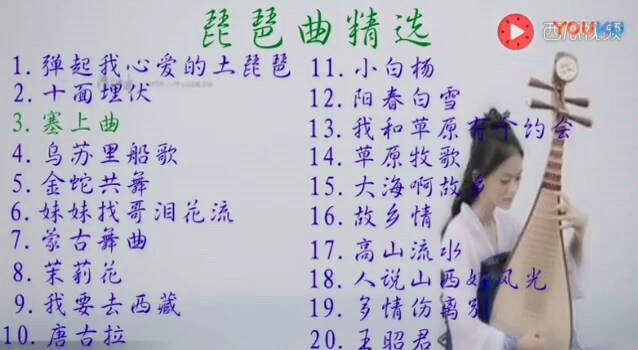 琵琶曲精选
西瓜视频
1. 弹起我心爱的土琵琶
2. 十面埋伏
3. 塞上曲
4. 乌苏里船歌
5. 金蛇共舞
6. 妹妹找哥泪花流
7. 蒙古舞曲
8. 茉莉花
9. 我要去西藏
10. 唐古拉
11. 小白杨
12. 阳春白雪
13. 我和草原有个约会
14. 草原牧歌
15. 大海啊故乡
16. 故乡情
17. 高山流水
18. 人说山西好风光
19. 多情伤离别
20. 王昭君